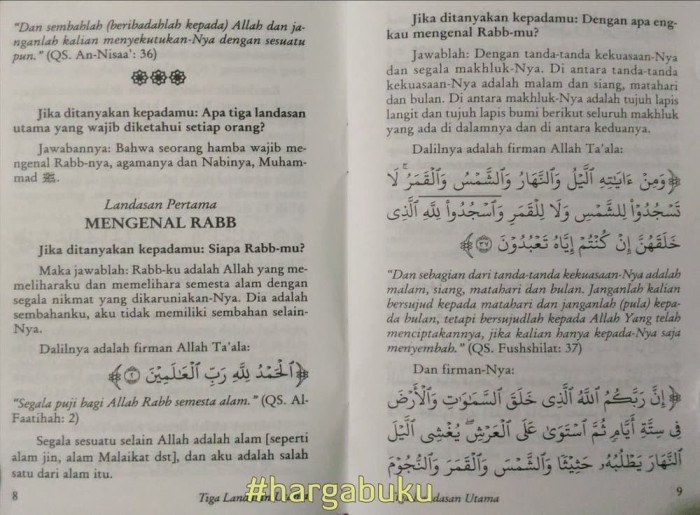 "Dan sembahlah (beribadahlah kepada) Allah dan ja-
nganlah kalian menyekutukan-Nya dengan sesuatu
pun." (QS. An-Nisaa': 36)
Jika ditanyakan kepadamu: Apa tiga landasan
utama yang wajib diketahui setiap orang?
Jawabannya: Bahwa seorang hamba wajib me-
ngenal Rabb-nya, agamanya dan Nabinya, Muham-
mad ﷺ.
Landasan Pertama
MENGENAL RABB
Jika ditanyakan kepadamu: Siapa Rabb-mu?
Maka jawablah: Rabb-ku adalah Allah yang me-
meliharaku dan memelihara semesta alam dengan
segala nikmat yang dikaruniakan-Nya. Dia adalah
sembahanku, aku tidak memiliki sembahan selain-
Nya.
Dalilnya adalah firman Allah Ta'ala:
﴿ٱلْحَمْدُ لِلَّهِ رَبِّ ٱلْعَـٰلَمِينَ ٢﴾
"Segala puji bagi Allah Rabb semesta alam." (QS. Al-
Faatihah: 2)
Segala sesuatu selain Allah adalah alam [seperti
alam jin, alam Malaikat dst], dan aku adalah salah
satu dari alam itu.
8
Jika ditanyakan kepadamu: Dengan apa eng-
kau mengenal Rabb-mu?
Jawablah: Dengan tanda-tanda kekuasaan-Nya
dan segala makhluk-Nya. Di antara tanda-tanda
kekuasaan-Nya adalah malam dan siang, matahari
dan bulan. Di antara makhluk-Nya adalah tujuh lapis
langit dan tujuh lapis bumi berikut seluruh makhluk
yang ada di dalamnya dan di antara keduanya.
Dalilnya adalah firman Allah Ta'ala:
﴿وَمِنْ ءَايَـٰتِهِ ٱلَّيْلُ وَٱلنَّهَارُ وَٱلشَّمْسُ وَٱلْقَمَرُ ۚ لَا
تَسْجُدُوا۟ لِلشَّمْسِ وَلَا لِلْقَمَرِ وَٱسْجُدُوا۟ لِلَّهِ ٱلَّذِى
خَلَقَهُنَّ إِن كُنتُمْ إِيَّاهُ تَعْبُدُونَ ٣٧﴾
"Dan sebagian dari tanda-tanda kekuasaan-Nya adalah
malam, siang, matahari dan bulan. Janganlah kalian
bersujud kepada matahari dan janganlah (pula) kepa-
da bulan, tetapi bersujudlah kepada Allah Yang telah
menciptakannya, jika kalian hanya kepada-Nya saja
menyembah." (QS. Fushshilat: 37)
Dan firman-Nya:
﴿إِنَّ رَبَّكُمُ ٱللَّهُ ٱلَّذِى خَلَقَ ٱلسَّمَـٰوَٰتِ وَٱلْأَرْضَ
فِى سِتَّةِ أَيَّامٍ ثُمَّ ٱسْتَوَىٰ عَلَى ٱلْعَرْشِ يُغْشِى ٱلَّيْلَ
ٱلنَّهَارَ يَطْلُبُهُۥ حَثِيثًا وَٱلشَّمْسَ وَٱلْقَمَرَ وَٱلنُّجُومَ
Utama
9
#hargabuku